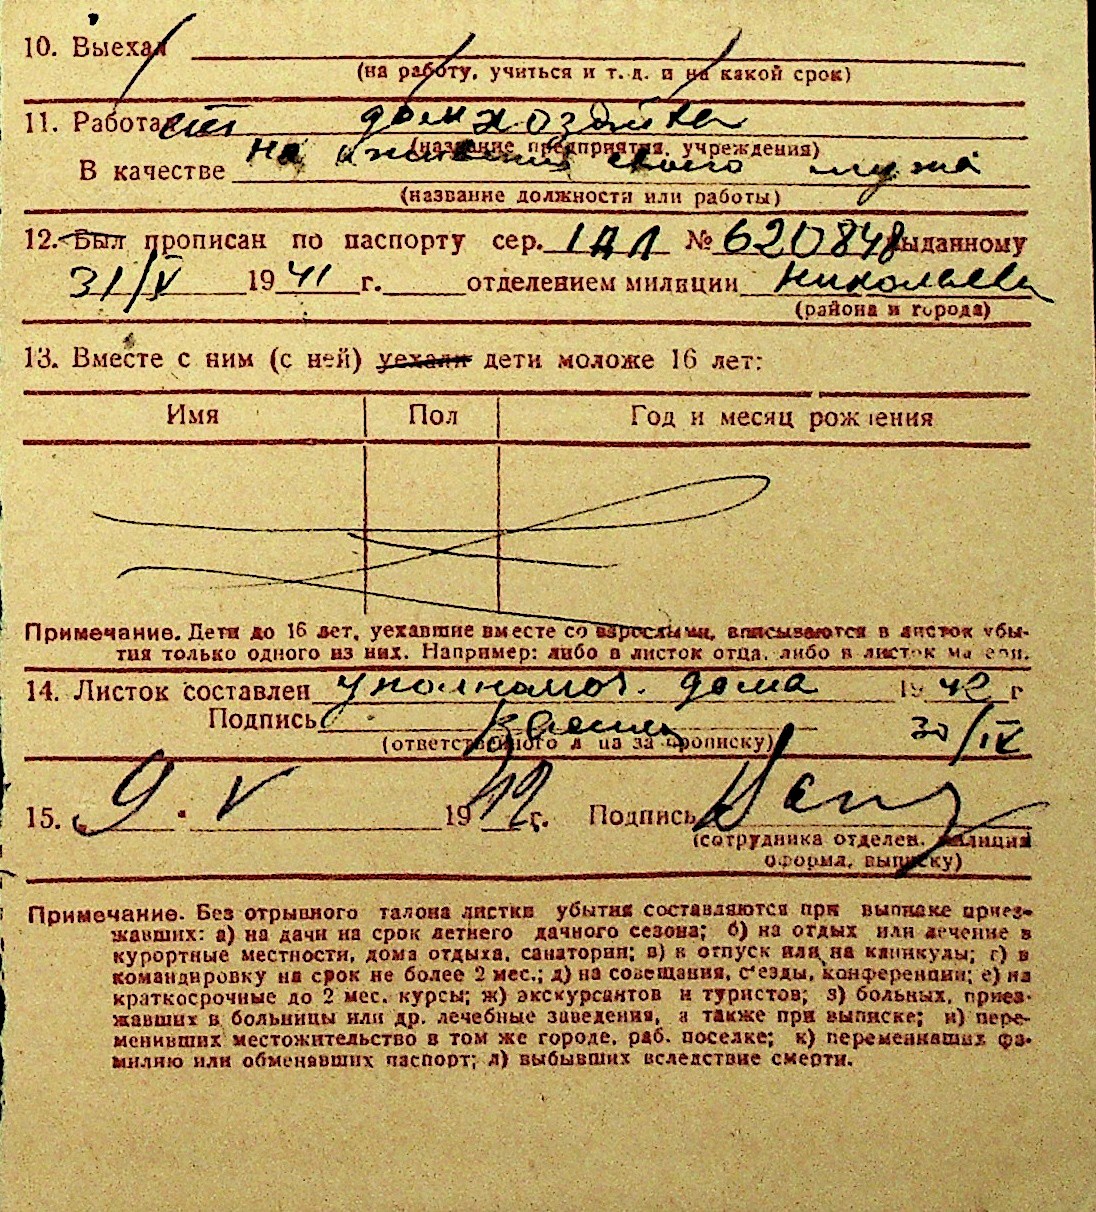 10. Выехал
(на работу, учиться и т. д. и на какой срок)
11. Работает домхозяйка
(название предприятия, учреждения)
В качестве на иждивении своего мужа
(название должности или работы)
12. Был прописан по паспорту сер. IДЛ № 620848 выданному
31/V 1941 г. отделением милиции Николаева
(района и города)
13. Вместе с ним (с ней) уехали дети моложе 16 лет:
Имя Пол Год и месяц рождения
Примечание. Дети до 16 лет, уехавшие вместе со взрослыми, вписываются в листок убы-
тия только одного из них. Например: либо в листок отца, либо в листок матери.
14. Листок составлен уполномоч. дома 1942 г
Подпись 30/IV
(ответственного лица за прописку)
15. 9. V 1942 г. Подпись
(сотрудника отделен. милиции
оформл. выписку)
Примечание. Без отрывного талона листки убытия составляются при выписке приез-
жавших: а) на дачи на срок летнего дачного сезона; б) на отдых или лечение в
курортные местности, дома отдыха, санатории; в) в отпуск или на каникулы; г) в
командировку на срок не более 2 мес.; д) на совещания, с'езды, конференции; е) на
краткосрочные до 2 мес. курсы; ж) экскурсантов и туристов; з) больных, приез-
жавших в больницы или др. лечебные заведения, а также при выписке; и) пере-
менивших местожительство в том же городе, раб. поселке; к) переменивших фа-
милию или обменявших паспорт; л) выбывших вследствие смерти.